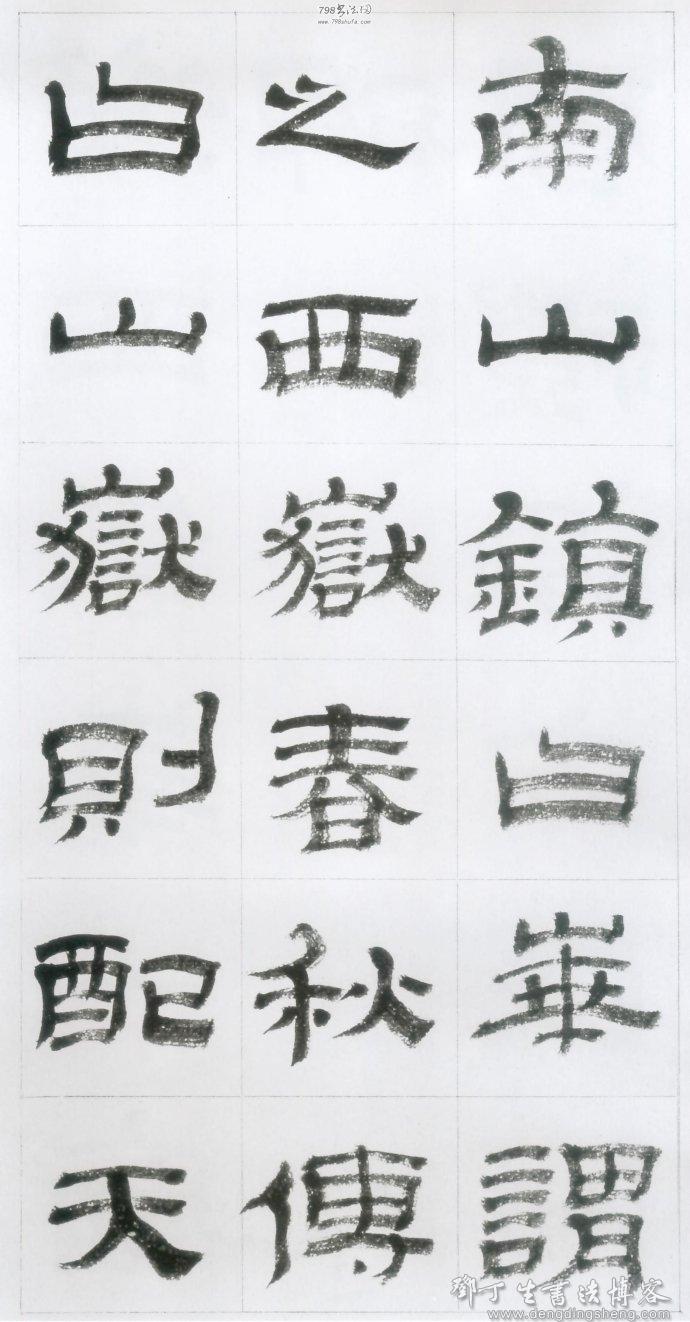 798书法网
www.798shufa.com
南山鎮曰崋謂
之西嶽春秋傳
曰山嶽則配天
鄧丁生書法博客
www.dengdingsheng.com